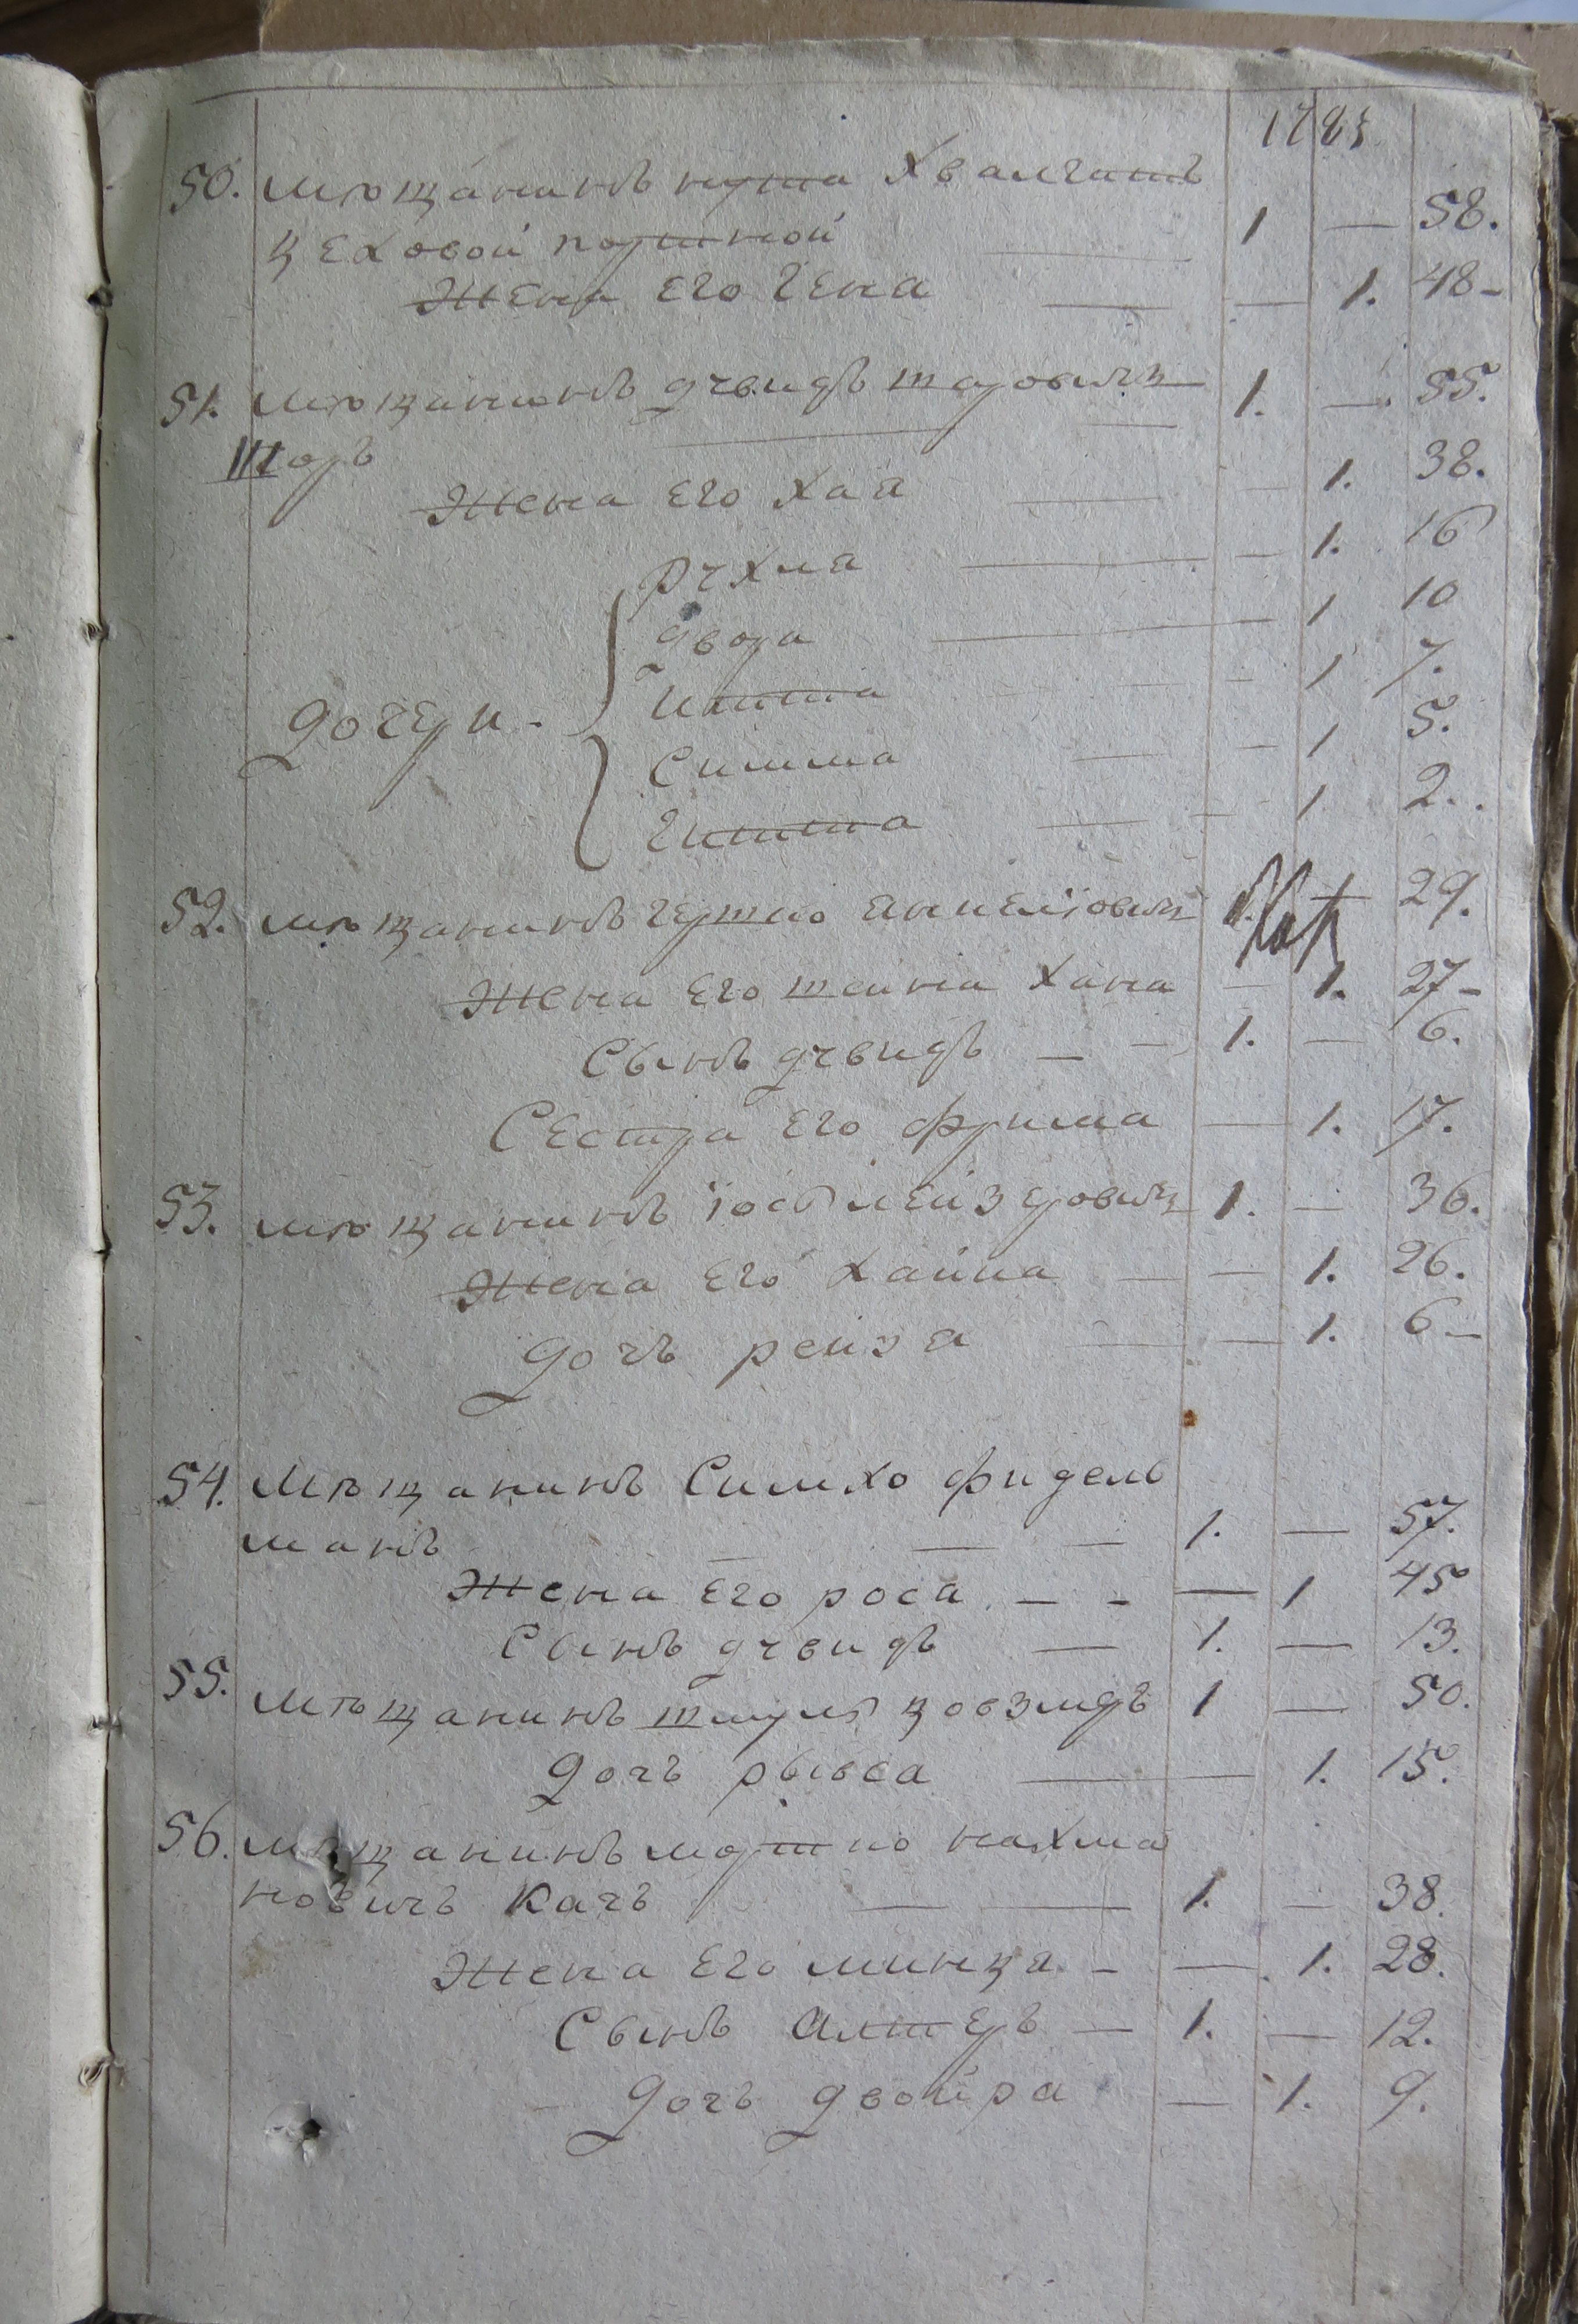 1785
50. мѣщанинъ нута Хвалгатъ
цеховой портной — 1 — 58.
Жена Его Гена — — 1. 48 -
51. мѣщанинъ давидъ шаровичъ 1. — 55.
Шоръ
Жена Его Хая — — 1. 38.
рахля — — 1. 16
двора — 1 10
дочери. Итта — 1 7.
Симма — — 1 5.
Гитта — — 1 2.
52. мѣщанинъ гершко янкеліовичъ — 29.
Жена Его шейна Хана — 1. 27 -
Сынъ давидъ — — 1. — 6.
Сестра Его фрима — 1. 17.
53. мѣщанинъ іось лейзеровичъ 1. — 36.
Жена Его Хайка — — 1. 26.
дочь рейза — — 1. 6 -
54. Мѣщанинъ Симхо фидель
манъ — — — 1. — 57.
Жена Его роса. — - — 1 45
Сынъ давидъ — 1. — 13.
55. Мѣщанинъ шмуль 1 — 50.
дочь рывса — — 1. 15.
56. мѣщанинъ мошко нахма
новичъ Качъ — — 1. — 38.
Жена Его минця — — 1. 28.
Сынъ Алтеръ — 1. — 12.
дочь двойра — 1. 9.